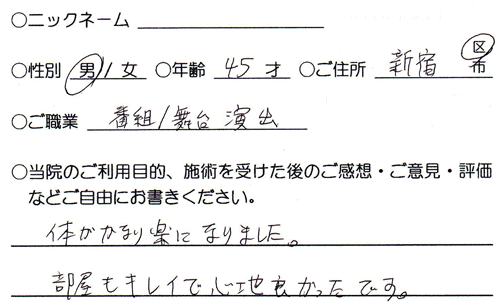 ○ニックネーム
○性別 男/女 ○年齢 45才 ○ご住所 新宿 区
市
○ご職業 番組/舞台演出
○当院のご利用目的、施術を受けた後のご感想・ご意見・評価
などご自由にお書きください。
体がかなり楽になりました。
部屋もキレイで心地良かったです。